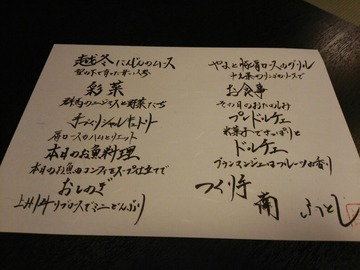 越冬にんじんのムース
雪の下で育った甘い人参
彩菜
群馬のージュースと野菜たち
手づくりシャルキュトリ
豚ロースのハムとリエット
本日のお魚料理
本日のお魚のコンフィ スープ仕立て
おしのぎ
上州牛リブロースでミニどんぶり
やまと豚肩ロースのグリル
十五条のリンゴのソースで
お食事
その日のおたのしみ
プレドルチェ
氷菓子でさっぱりと
ドルチェ
ブランマンジェはフルーツの香り
つくり手
南 ふとし